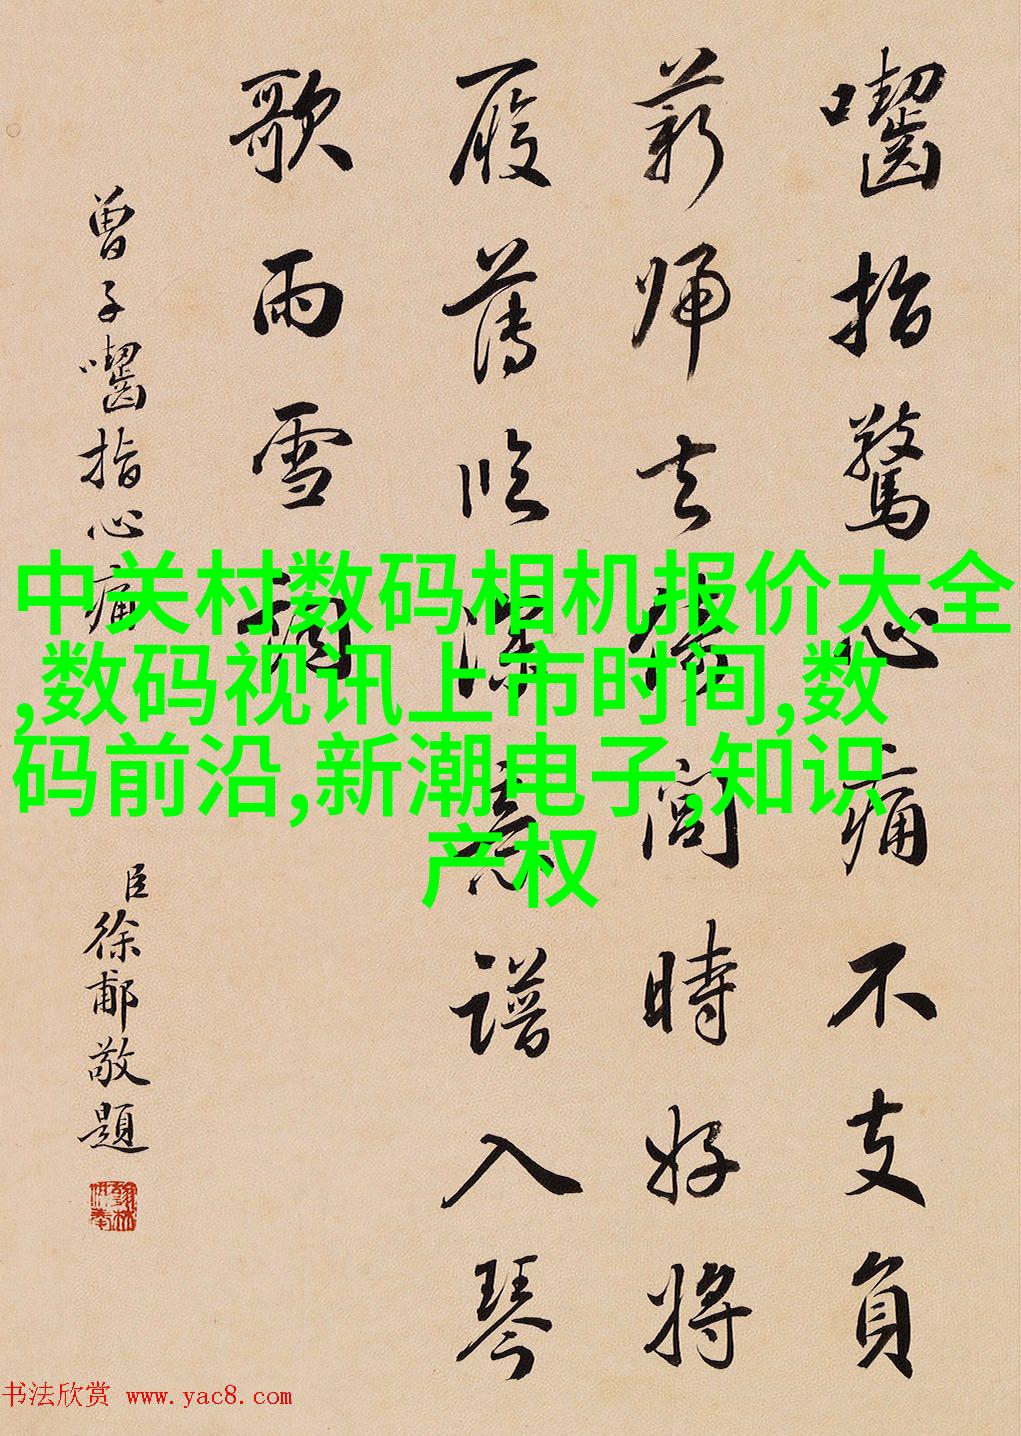 囓指驚心痛不支負
薪歸去倚閭時好將
履薄臨深意譜入琴
歌雨雪
曾子囓指心痛
臣徐郙敬題
中关村数码相机报价大全
,数码视讯上市时间,数
码前沿,新潮电子,知识
产权
书法欣赏 www.yac8.com